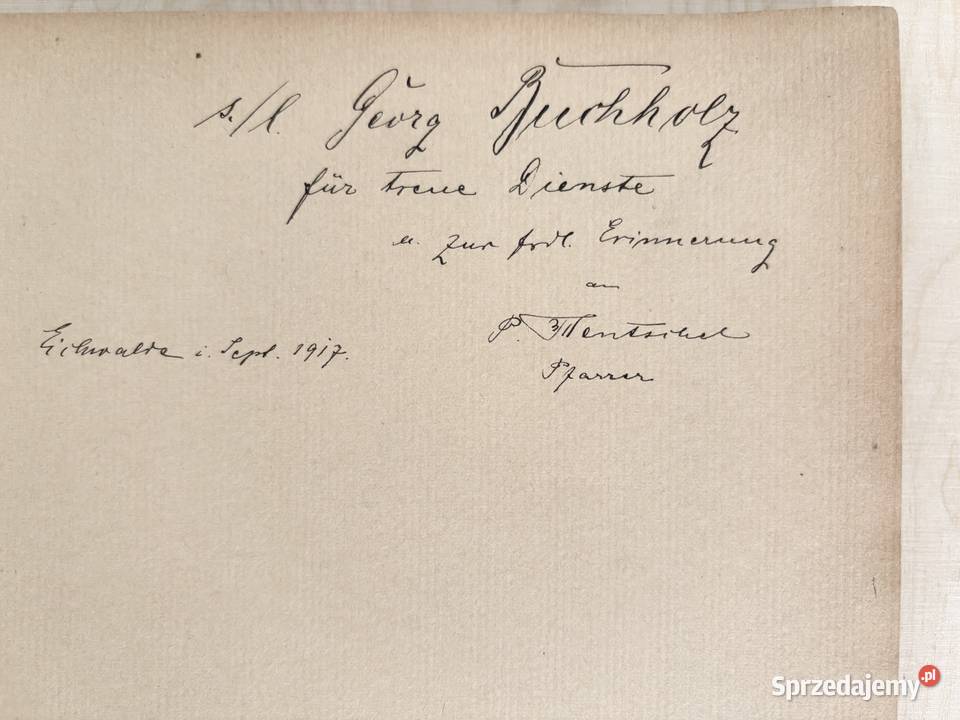 s./l. Georg Buchholz
für treue Dienste
u. zur frdl. Erinnerung
an
P. Mentschel
Pfarrer
Eichwalde i. Sept. 1917.
Sprzedajemy.pl